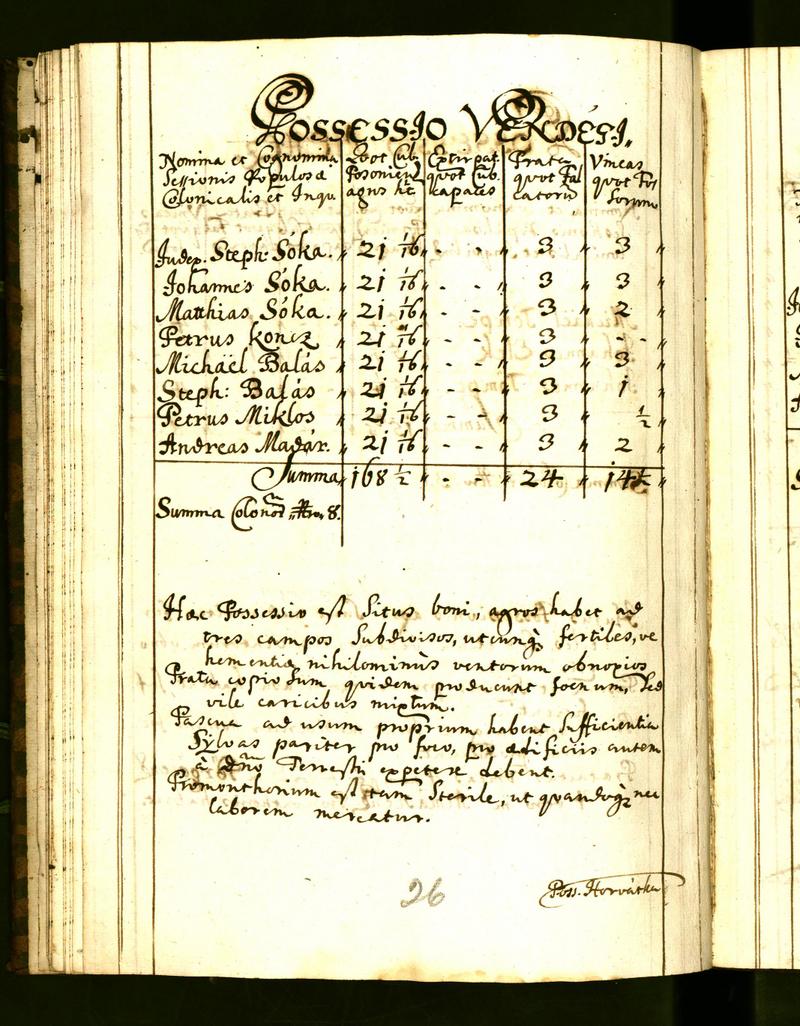 Possessio Vendégi.
Nomina et Cognomina Quot Cub. Extirpat. Prata Vineas
Sessionis Populosæ Posonien. quot Cub. quot Fal quot Fos
Colonicalis et Inqu. agros ht. capaces catorū sorum
Judex. Steph: Sóka. 21 1/16 - - 3 3
Johannes Sóka. 21 1/16 - - 3 3
Matthias Sóka. 21 1/16 - - 3 2
Petrus Koncz 21 1/16 - - 3 - -
Michaël Balás 21 1/16 - - 3 3
Steph: Balás 21 1/16 - - 3 1
Petrus Miklos 21 1/16 - - 3 1/2
Andreas Madár. 21 1/16 - - 3 2
Summa 168 1/2 - - 24 14 1/2
Summa Colonor 8.
Hæc Possessio est Situs boni, agros habet ad
tres campos Subdivisos, utcunq; fertiles, ve
hementia nihilominùs ventorum obnoxios
Prata copiosum quidem producunt foenum, Sed
vile caricibus mixtum.
Pascua ad usum proprium habent Sufficientia
Sylvas pariter pro foco, pro ædificiis autem
à Dño Terrestri expetere debent.
Promonthorium est tam Sterile, ut quandoq; nec
laborem mereatur.
26
Poss. Horvátha